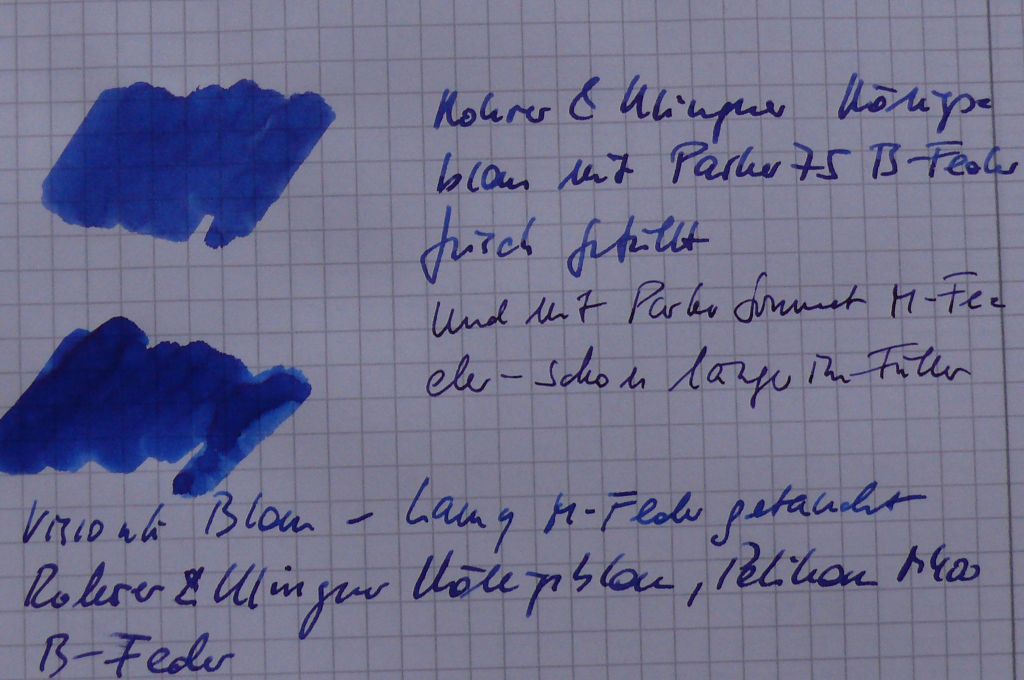 Rohrer & Klingner Königs=
blau mit Parker 75 B-Feder
frisch gefüllt
und mit Parker Sonnet M-Fe=
der - schon länger im Füller
Visconti Blau - Lamy M-Feder getaucht
Rohrer & Klingner Königsblau, Pelikan M400
B-Feder